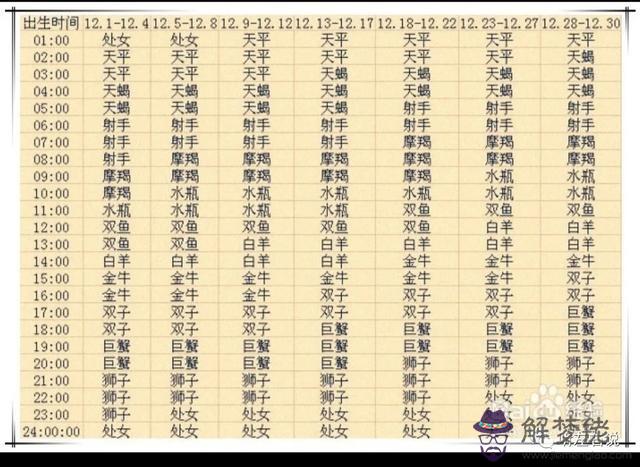 出生时间 12.1-12.4 12.5-12.8 12.9-12.12 12.13-12.17 12.18-12.22 12.23-12.27 12.28-12.30
01:00 处女 处女 天平 天平 天平 天平 天平
02:00 天平 天平 天平 天平 天平 天平 天蝎
03:00 天平 天平 天平 天蝎 天蝎 天蝎 天蝎
04:00 天蝎 天蝎 天蝎 天蝎 天蝎 天蝎 天蝎
05:00 天蝎 天蝎 天蝎 天蝎 射手 射手 射手
06:00 射手 射手 射手 射手 射手 射手 射手
07:00 射手 射手 射手 射手 摩羯 摩羯 摩羯
08:00 射手 摩羯 摩羯 摩羯 摩羯 摩羯 摩羯
09:00 摩羯 摩羯 摩羯 摩羯 摩羯 水瓶 水瓶
10:00 摩羯 水瓶 水瓶 水瓶 水瓶 水瓶 水瓶
11:00 水瓶 水瓶 水瓶 水瓶 双鱼 双鱼 双鱼
12:00 双鱼 双鱼 双鱼 双鱼 双鱼 白羊 白羊
13:00 双鱼 双鱼 白羊 白羊 白羊 白羊 白羊
14:00 白羊 白羊 白羊 白羊 金牛 金牛 金牛
15:00 金牛 金牛 金牛 金牛 金牛 金牛 双子
16:00 金牛 金牛 金牛 双子 双子 双子 双子
17:00 双子 双子 双子 双子 双子 双子 巨蟹
18:00 双子 双子 双子 巨蟹 巨蟹 巨蟹 巨蟹
19:00 巨蟹 巨蟹 巨蟹 巨蟹 巨蟹 巨蟹 巨蟹
20:00 巨蟹 巨蟹 巨蟹 巨蟹 狮子 狮子 狮子
21:00 狮子 狮子 狮子 狮子 狮子 狮子 狮子
22:00 狮子 狮子 狮子 狮子 狮子 处女 处女
23:00 狮子 处女 处女 处女 处女
24:00:00 处女 处女 处女 处女 处女
解梦佬
www.jiemenglao.com